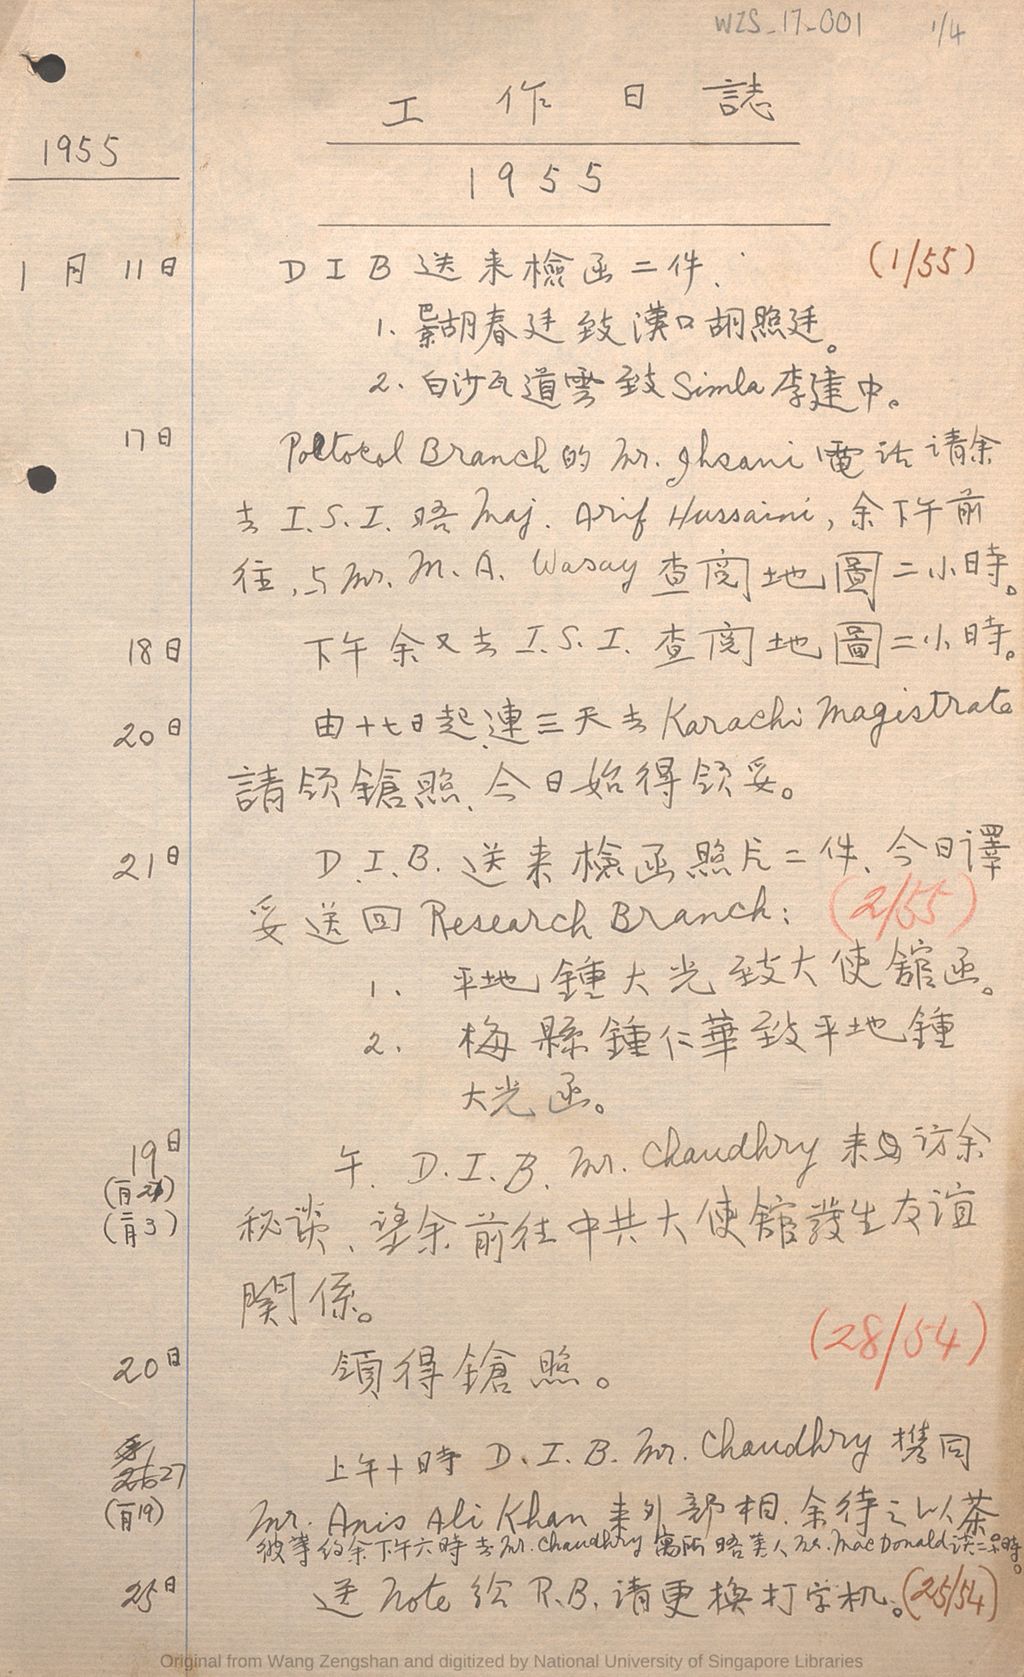 WZS_17_001 1/4
工作日誌
1955
1955
1月11日 D I B 送来檢函二件. (1/55)
1. 胡春廷致漢口胡照廷。
2. 白沙瓦道雲致Simla李建中。
17日 Poltocol Branch的Mr. Ihsani電話请余
去I.S.I.晤Maj. Arif Hussaini, 余下午前
往,与Mr. M. A. Wasay查阅地圖二小時。
18日 下午余又去I.S.I.查阅地圖二小時。
20日 由十七日起,連三天去Karachi Magistrate
請领鎗照、今日始得领妥。
21日 D.I.B.送来檢函照片二件、今日譯
妥送回Research Branch: (2/55)
1. 平地鍾大光致大使舘函。
2. 梅縣鍾仁華致平地鍾
大光函。
19日 午. D.I.B. Mr. Chaudhry来访余
(二月3) 秘谈、望余前往中共大使舘發生友誼
関係。
(28/54)
20日 領得鎗照。
27 上午十時D.I.B. Mr. Chaudhry携同
(一月19) Mr. Anis Ali Khan来外部相.余待之以茶
彼等约余下午六時去Mr. Chaudhry寓所晤美人Mr. MacDonald谈二小時。
25日 送Note给R.B.请更换打字机。(25/54)
Original from Wang Zengshan and digitized by National University of Singapore Libraries